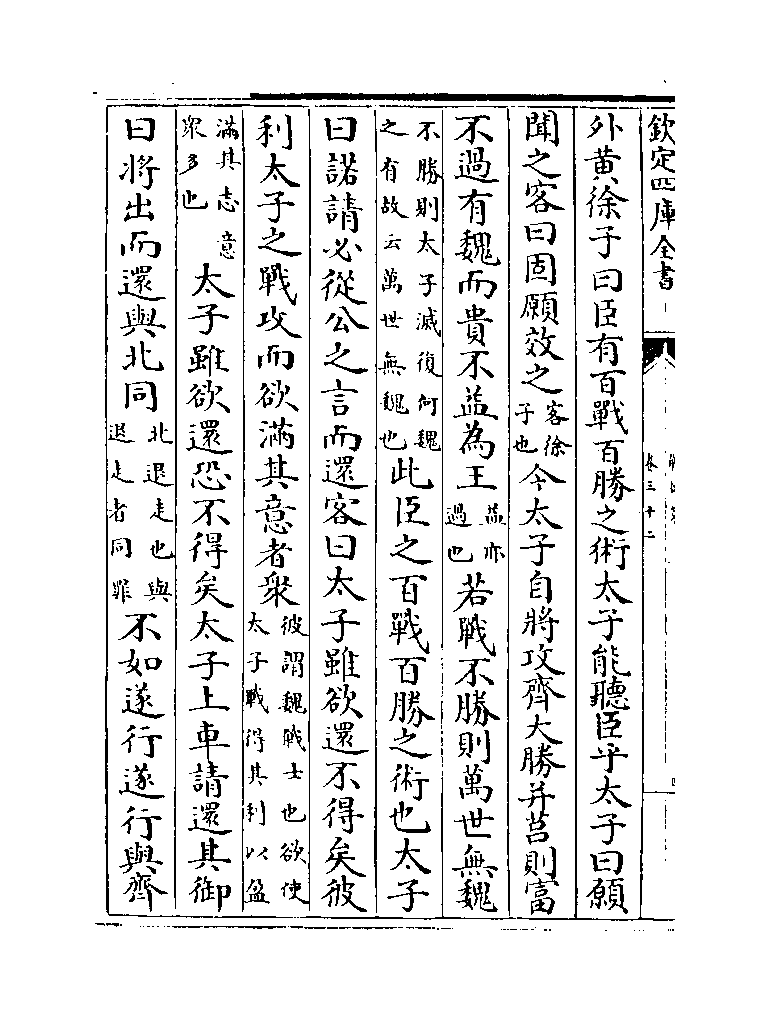 欽定四庫全書
卷三十二
外黄徐子曰臣有百戰百勝之術太子能聽臣乎太子曰願
聞之客曰固願效之客徐子也今太子自將攻齊大勝并莒則富
不過有魏而貴不益為王益亦過也若戰不勝則萬世無魏
不勝則太子滅復何魏之有故云萬世無魏也此臣之百戰百勝之術也太子
曰諾請必從公之言而還客曰太子雖欲還不得矣彼
利太子之戰攻而欲滿其意者衆彼謂魏戰士也欲使太子戰得其利以盈
滿其志意衆多也太子雖欲還恐不得矣太子上車請還其御
曰将出而還與北同北退走也與退走者同罪不如遂行遂行與齊